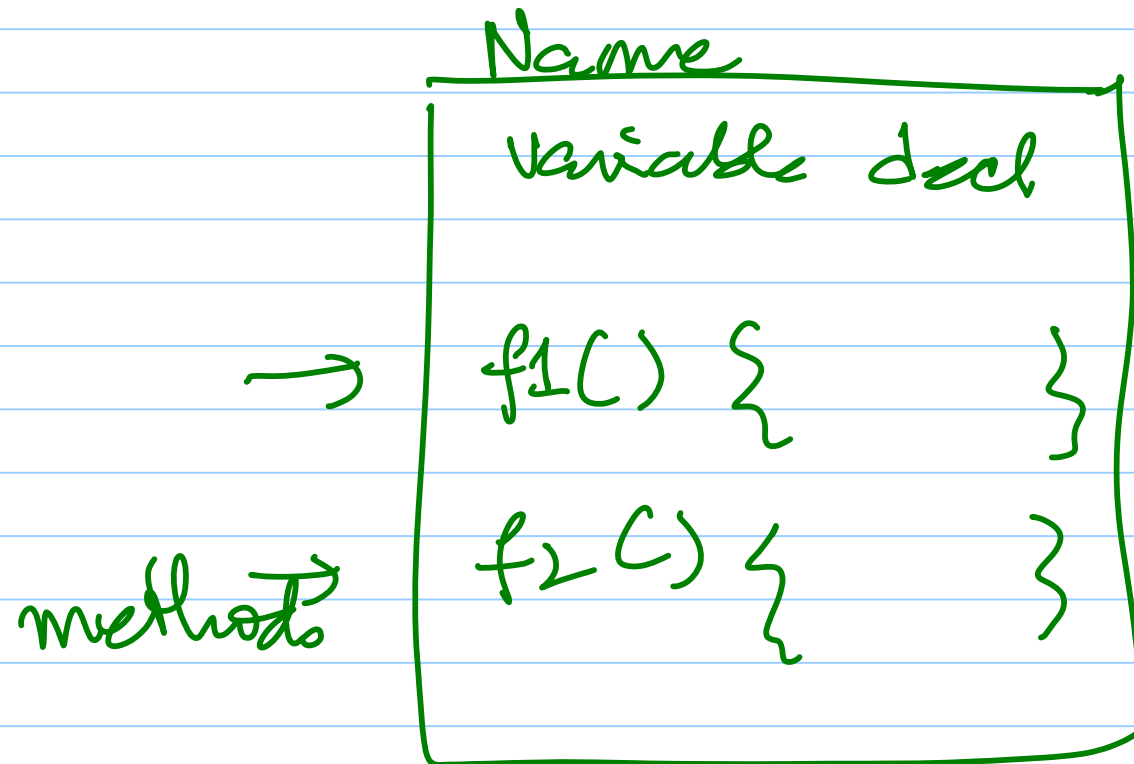 Name
variable decl
→ f1() { }
f2() { }
methods →